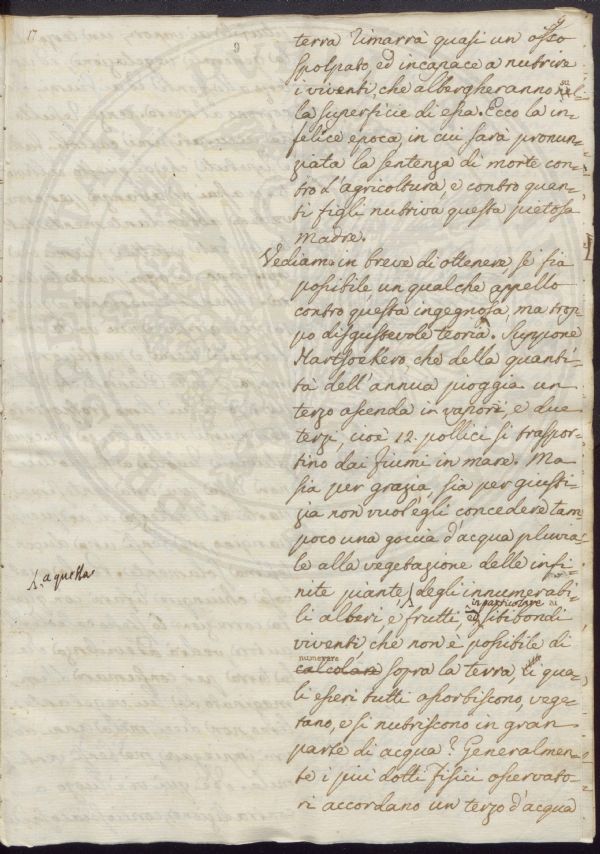 17
9
terra rimarrà quasi un osso
spolpato, ed incapace a nutrire
i viventi, che albergheranno
su
la superficie di essa. Ecco la in=
felice epoca, in cui sarà pronun=
ziata la sentenza di morte con=
tro l'agricoltura, e contro quan=
ti figli nutriva questa pietosa
Madre.
Vediamo in breve di ottenere se sia
possibile un qualche appello
contro questa ingegnosa, ma trop=
po disgustevole teoria. Suppone
Hartsoekero, che della quanti=
tà dell'annua pioggia un
terzo ascenda in vapori, e due
terzi, cioè 12. pollici si traspor=
tino dai fiumi in mare. Ma
sia per grazia, sia per giusti=
zia non vuol'egli concedere tam=
poco una goccia d'acqua pluvia=
le alla vegetazione delle infi=
nite piante, degli innumerabi=
a quella
li alberi, e frutti, sitibondi
in particolare
viventi, che non è possibile di
numerare
calcolare sopra la terra, li qua=
li esseri tutti assorbiscono, vege=
tano, e si nutriscono in gran
parte di acqua? Generalmen=
te i più dotti fisici osservato=
ri accordano un terzo d'acqua